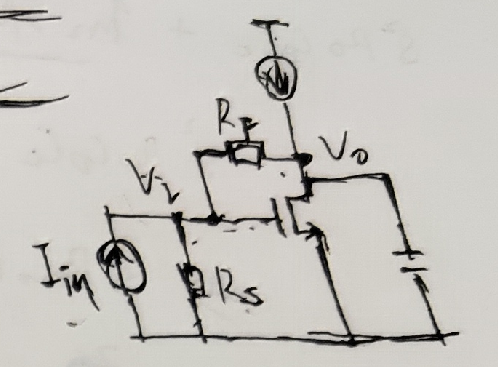 R_F
V_o
V_i
I_in
R_S